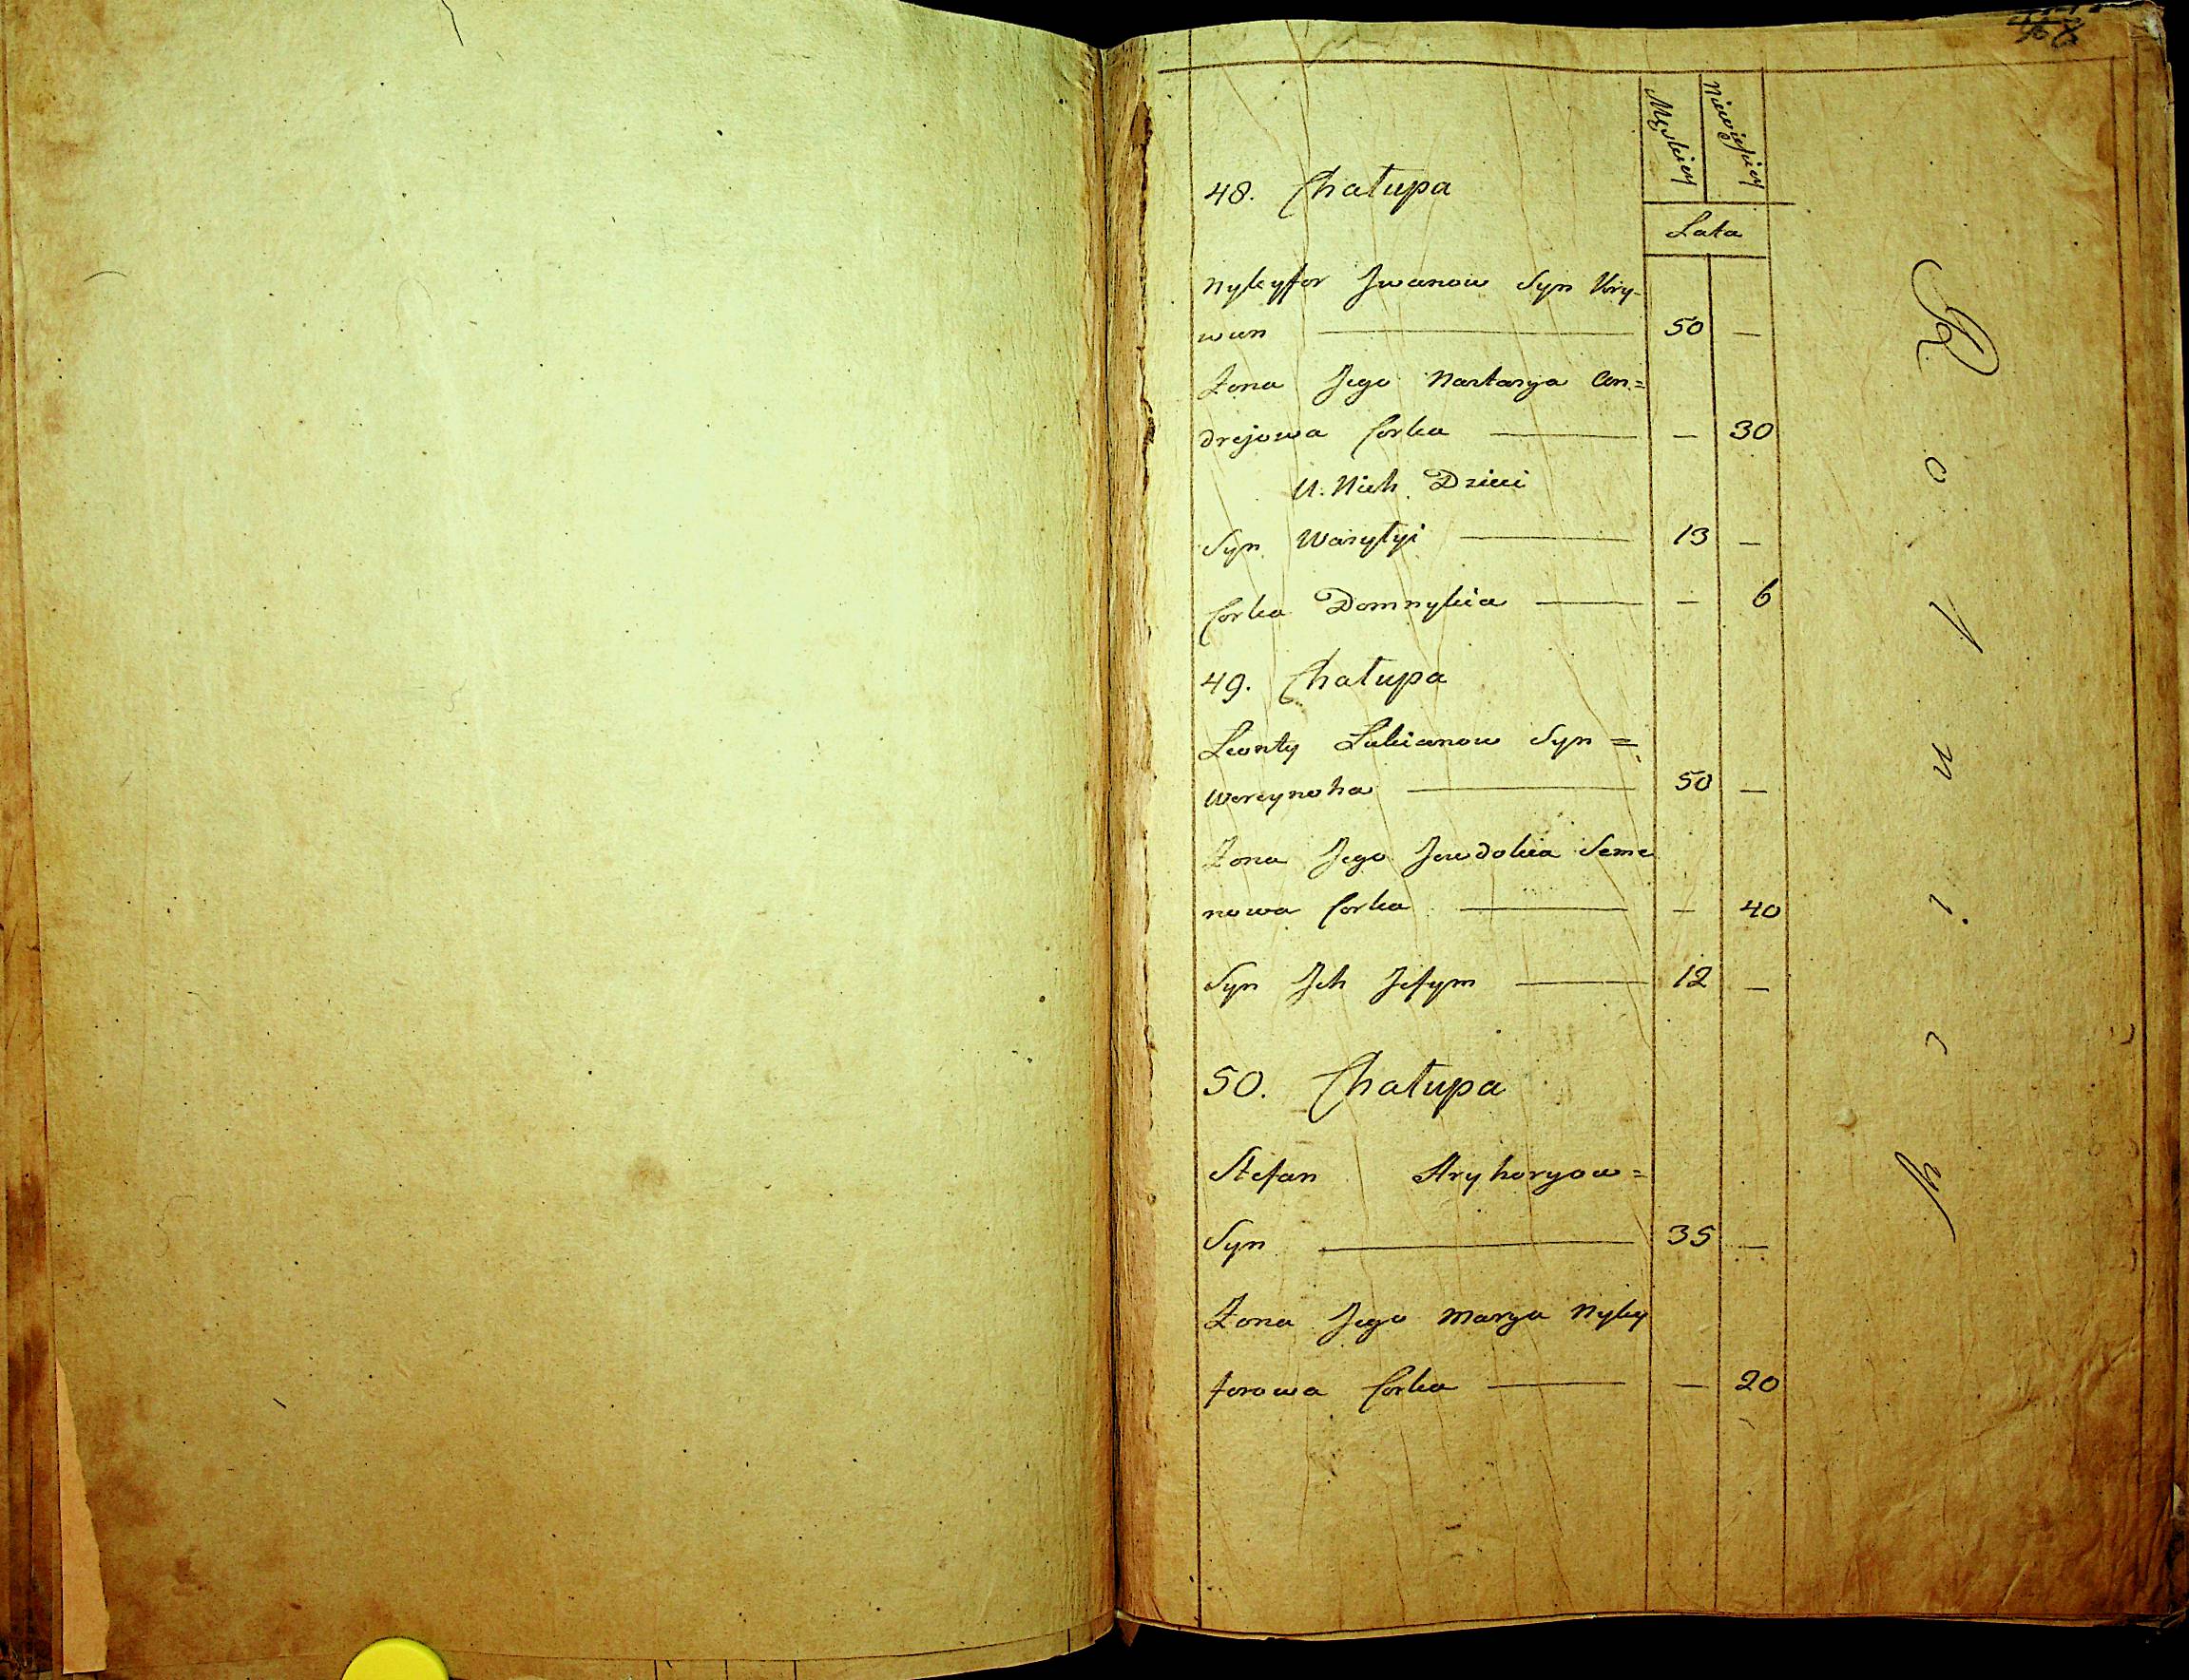 Męskiey
Niewieściey
48. Chałupa
Lata
Nykyfor Jwanow Syn Kry-
wun 50 —
Żona Jego Nastasya An=
drejowa Corka — 30
U Nich Dzieci
Syn Wasylyi 13 —
Corka Domnykia — 6
49. Chałupa
Leonty Lukianow Syn =
Wereynoha 50 —
Żona Jego Jewdokia Seme
nowa Corka — 40
Syn Jch Jefym 12 —
50. Chałupa
Stefan Hryhoryow=
Syn 35 —
Żona Jego Marya Nyky
forowa Corka — 20
R
o
l
n
i
c
y